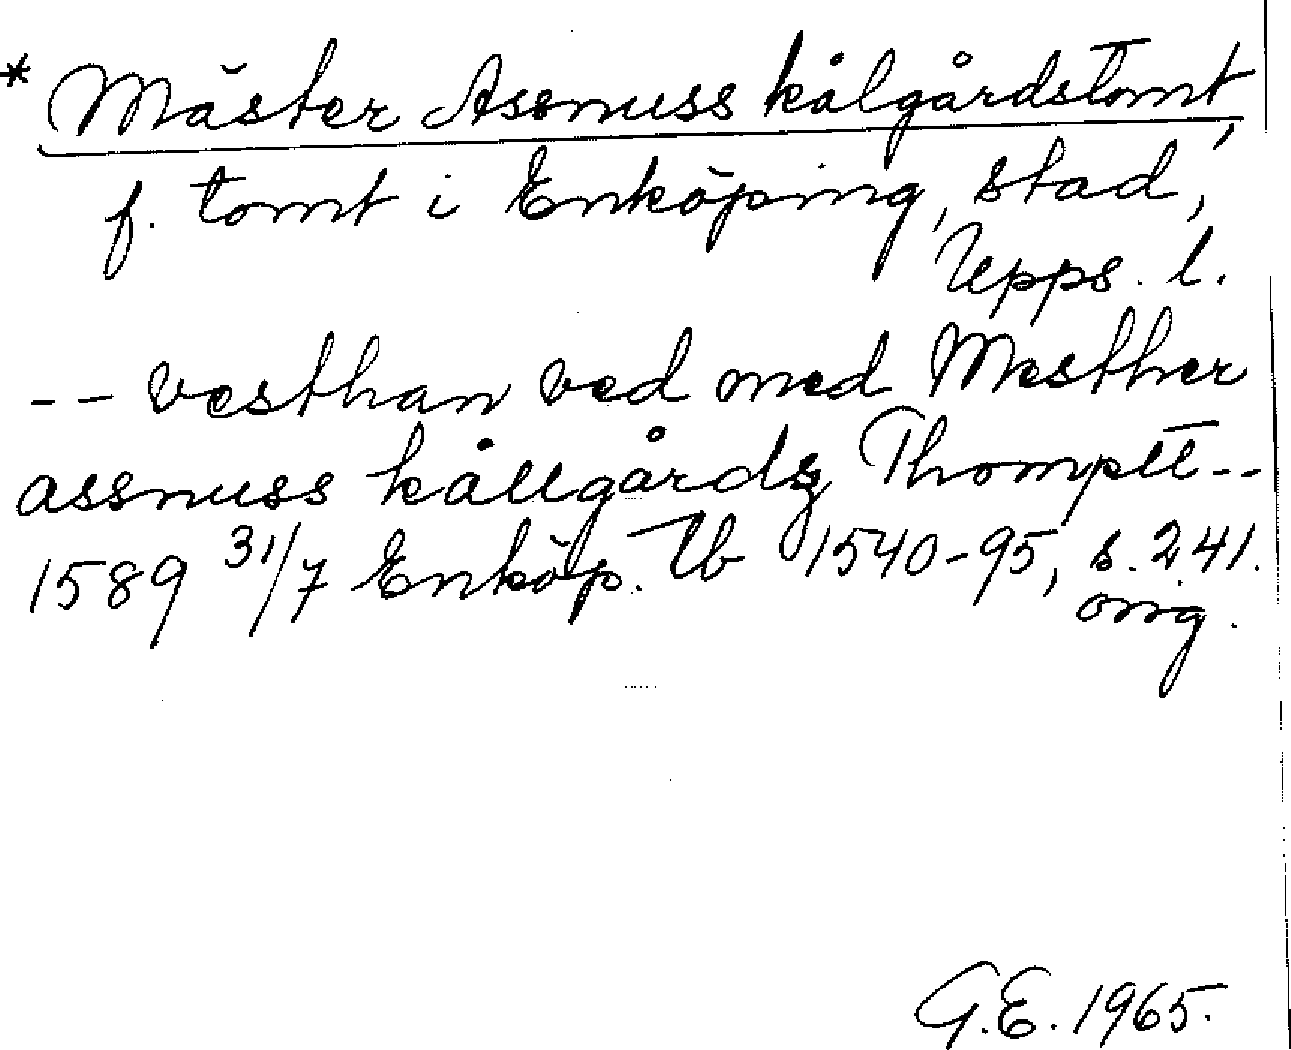 * Mäster Assmuss kålgårdstomt,
f. tomt i Enköping, stad,
Upps. l.
-- vesthan ved med Mesther
assmuss kållgårdz Thomptt --
1589 31/7 Enköp. Tb 1540-95, s. 241.
orig.
G.E. 1965.